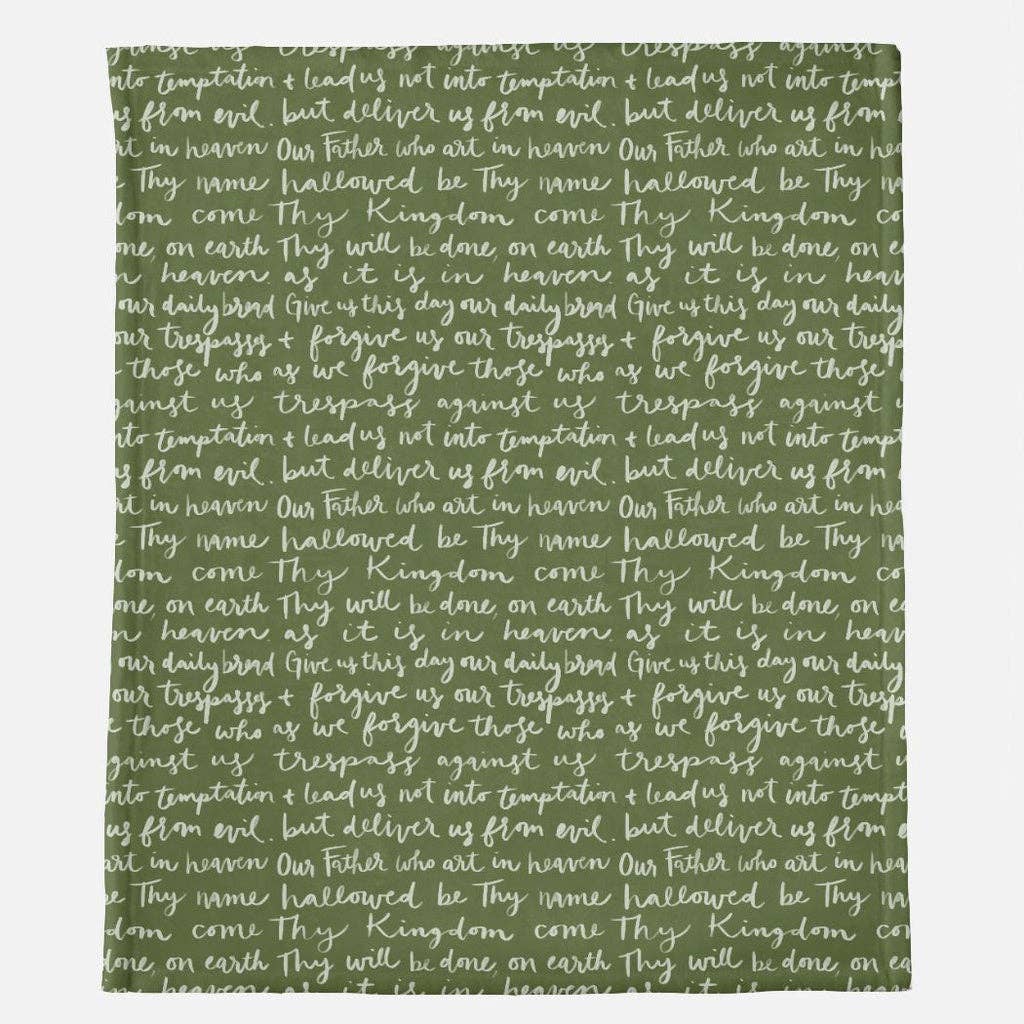 us trespass against us trespass against
into temptation + lead us not into temptation + lead us not into tempt
us from evil. but deliver us from evil. but deliver us from
art in heaven Our Father who art in heaven Our Father who art in hea
e Thy name hallowed be Thy name hallowed be Thy na
dom come Thy Kingdom come Thy Kingdom co
one, on earth Thy will be done, on earth Thy will be done, on ea
n heaven as it is in heaven as it is in heaven
our daily bread Give us this day our daily bread Give us this day our daily
our trespasses + forgive us our trespasses + forgive us our trespa
those who as we forgive those who as we forgive those
against us trespass against us trespass against u
into temptation + lead us not into temptation + lead us not into tempt
us from evil. but deliver us from evil. but deliver us from e
art in heaven Our Father who art in heaven Our Father who art in hea
e Thy name hallowed be Thy name hallowed be Thy na
dom come Thy Kingdom come Thy Kingdom co
one, on earth Thy will be done, on earth Thy will be done, on ea
n heaven as it is in heaven as it is in heaven
our daily bread Give us this day our daily bread Give us this day our daily
our trespasses + forgive us our trespasses + forgive us our trespa
those who as we forgive those who as we forgive those
against us trespass against us trespass against u
into temptation + lead us not into temptation + lead us not into tempt
us from evil. but deliver us from evil. but deliver us from e
art in heaven Our Father who art in heaven Our Father who art in hea
be Thy name hallowed be Thy name hallowed be Thy na
dom come Thy Kingdom come Thy Kingdom co
done, on earth Thy will be done, on earth Thy will be done, on ea
in heaven as it is in heaven as it is in heaven